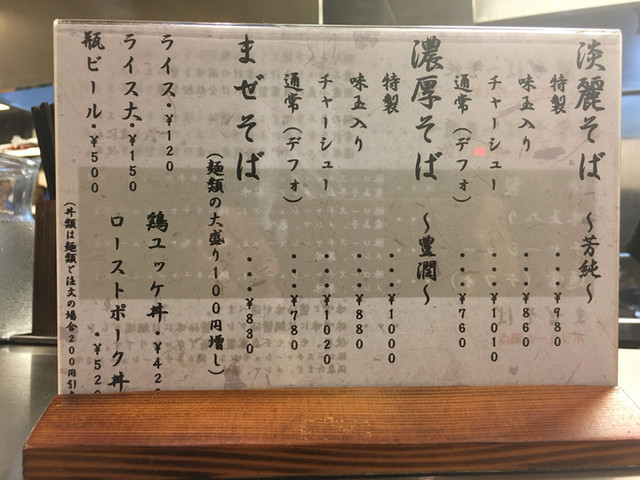 淡麗そば 〜芳純〜
特製・・・・¥980
味玉入り・・・・¥860
チャーシュー・・・¥1010
通常(デフォ)・・・・¥760
濃厚そば 〜豊潤〜
特製・・・・¥1000
味玉入り・・・・¥880
チャーシュー・・・¥1020
通常(デフォ)・・・・¥780
まぜそば・・・・¥830
(麺類の大盛り100円増し)
ライス・¥120
鶏ユッケ丼・¥42
ライス大・¥150
ローストポーク丼・¥520
瓶ビール・¥500
(丼類は麺類ご注文の場合200円引